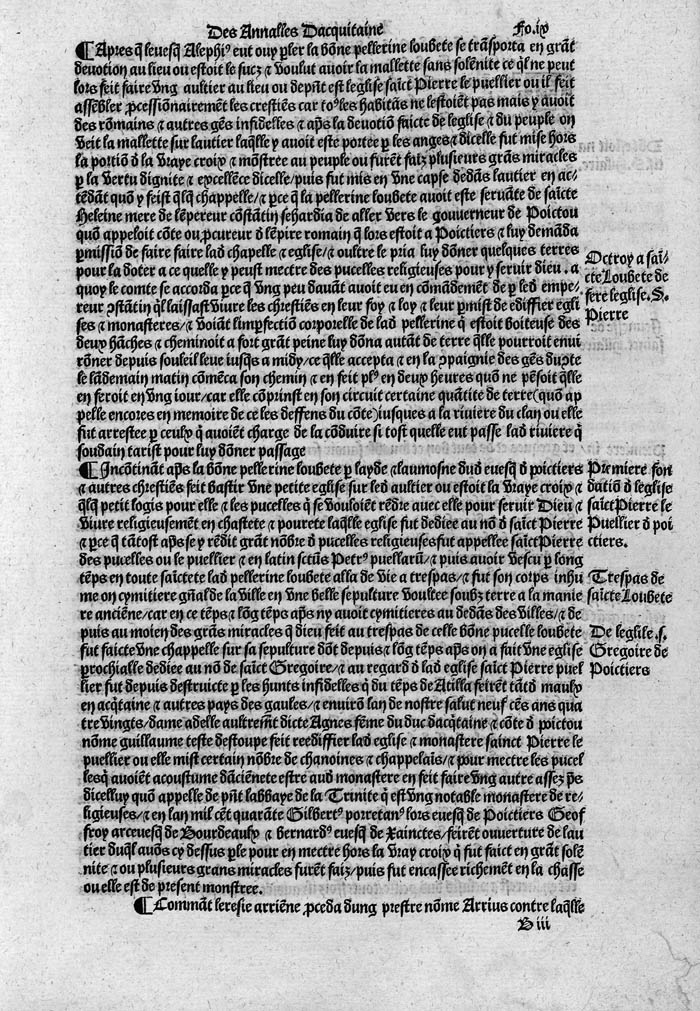 Des Annalles Dacquitaine Fo.ix
¶Apres q̃ levesq̃ Alephi⁹ eut ouy ꝑler la bõne pellerine loubete se trãsporta en grãt
devotion au lieu ou estoit le sucz ⁊ voulut avoir la mallette sans solẽnite ce ql̃ ne peut
lors feit faire vng aultier au lieu ou depñt est leglise saĩct Pierre le puellier ou il feit
assẽbler ꝓcessionairemẽt les crestiẽs car to⁹ les habitãs ne lestoiẽt pas mais y avoit
des rõmains ⁊ autres gẽs infidelles ⁊ apẽs la devotiõ faicte de leglise ⁊ du peuple on
veit la mallette sur lautier laq̃lle y avoit este portee ꝑ les anges ⁊ dicelle fut mise hors
la portiõ d̃ la vraye croix ⁊ mõstree au peuple ou furẽt faiz plusieurs grãs miracles
ꝑ la vertu dignite ⁊ excellẽce dicelle/puis fut mis en vne capse dedãs lautier en ac-
tẽdãt quõ y feist q̃lq̃ chappelle/⁊ ꝑce q̃ la pellerine loubete avoit este servãte de saĩcte
Heleine mere de lẽpereur cõstãtin sehardia de aller vers le gouverneur de Poictou
quõ appeloit cõte ou ꝓcureur d̃ lẽpire romain q̃ lors estoit a Poictiers ⁊ luy demãda
ꝑmissiõ de faire faire lad̃ chapelle ⁊ eglise/⁊ oultre le pria luy dõner quelques terres
pour la doter a ce quelle y peust mectre des pucelles religieuses pour y servir dieu . a
quoy le comte se accorda ꝑce q̃ vng peu davãt avoit eu en cõmãdemẽt de ꝑ led̃ empe-
reur ↄstãtin ql̃ laissast vivre les chrestiẽs en leur foy ⁊ loy ⁊ leur ꝑmist de ediffier egli
ses ⁊ monasteres/⁊ voiãt limꝑfectiõ corporelle de lad̃ pellerine q̃ estoit boiteuse des
deux hãches ⁊ cheminoit a fort grãt peine luy dõna autãt de terre q̃lle pourroit envi
rõner depuis souleil leve iusq̃s a midy/ce q̃lle accepta ⁊ en la ↄpaignie des gẽs ducte
le lãdemain matin cõmẽca son chemin ⁊ en feit pl⁹ en deux heures quõ ne pẽsoit q̃lle
en feroit en vng iour/car elle cõprinst en son circuit certaine quãtite de terre(quõ ap
pelle encores en memoire de ce les deffens du cõte)iusques a la riviere du clan ou elle
fut arrestee ꝑ ceulx q̃ avoiẽt charge de la cõduire si tost quelle eut passe lad̃ riviere q̃
soudain tarist pour luy dõner passage
¶Incõtinãt apẽs la bõne pellerine loubete ꝑ layde ⁊ laumosne dud̃ evesq̃ d̃ poictiers
⁊ autres chrestiẽs feit bastir vne petite eglise sur led̃ aultier ou estoit la vraye croix ⁊
q̃lq̃ petit logis pour elle ⁊ les pucelles q̃ se vouloiẽt rẽdre avec elle pour servir Dieu ⁊
vivre religieusemẽt en chastete ⁊ pourete laq̃lle eglise fut dediee au nõ d̃ saĩct Pierre
⁊ ꝑce q̃ tãtost apẽs se y rẽdit grãt nõbre d̃ pucelles religieuses fut appellee saĩct Pierre
des pucelles ou le puellier ⁊ en latin sctũs Petr⁹ puellarũ/⁊ puis avoir vescu ꝑ long
tẽps en toute saĩctete lad̃ pellerine loubete alla de vie a trespas/⁊ fut son corps inhu
me on cymitiere gñal de la ville en vne belle sepulture voultee soubz terre a la manie
re anciẽne/car en ce tẽps ⁊ lõg tẽps apẽs ny avoit cymitieres au dedãs des villes/⁊ de
puis au moien des grãs miracles q̃ dieu feit au trespas de celle bõne pucelle loubete
fut faicte vne chappelle sur sa sepulture dõt depuis ⁊ lõg tẽps apẽs on a fait vne eglise
ꝑrochialle dediee au nõ de saĩct Gregoire/⁊ au regard d̃ lad̃ eglise saĩct Pierre puel
lier fut depuis destruicte ꝑ les hunts infidelles q̃ du tẽps de Atilla feirẽt tãtd̃ maulx
en acq̃taine ⁊ autres pays des gaules/⁊ envirõ lan de nostre salut neuf cẽs ans qua
tre vingts/dame adelle aultremẽt dicte Agnes fẽme du duc dacq̃taine ⁊ cõte d̃ poictou
nõme guillaume teste destoupe feit reediffier lad̃ eglise ⁊ monastere sainct Pierre le
puellier ou elle mist certain nõbre de chanoines ⁊ chappelais/⁊ pour mectre les pucel
lesq̃ avoiẽt acoustume dãciẽnete estre aud̃ monastere en feit faire vng autre assez ꝑ̃s
dicelluy quõ appelle de pñt labbaye de la Trinite q̃ est vng notable monastere de re-
ligieuses/⁊ en lan mil cẽt quarãte Gilbert⁹ porretan⁹ lors evesq̃ de Poictiers Geof
froy arcevesq̃ de Bourdeaulx ⁊ bernard⁹ evesq̃ de Xainctes/feirẽt ouverture de lau
tier duql̃ avõs cy dessus ꝑle pour en mectre hors la vray croix q̃ fut faict en grãt solẽ
nite ⁊ ou plusieurs grans miracles furẽt faiz/puis fut encassee richemẽt en la chasse
ou elle est de present monstree.
¶Commãt leresie arriẽne ꝓceda dung prestre nõme Arrius contre laq̃lle
B iii
Octroy a saĩ-
cte Loubete de
fere leglise. S.
Pierre
Premiere fon
datiõ d̃ leglise
saĩct Pierre le
Puellier d̃ poi
ctiers.
Trespas de
saĩcte Loubete
De leglise .s.
Gregoire de
Poictiers